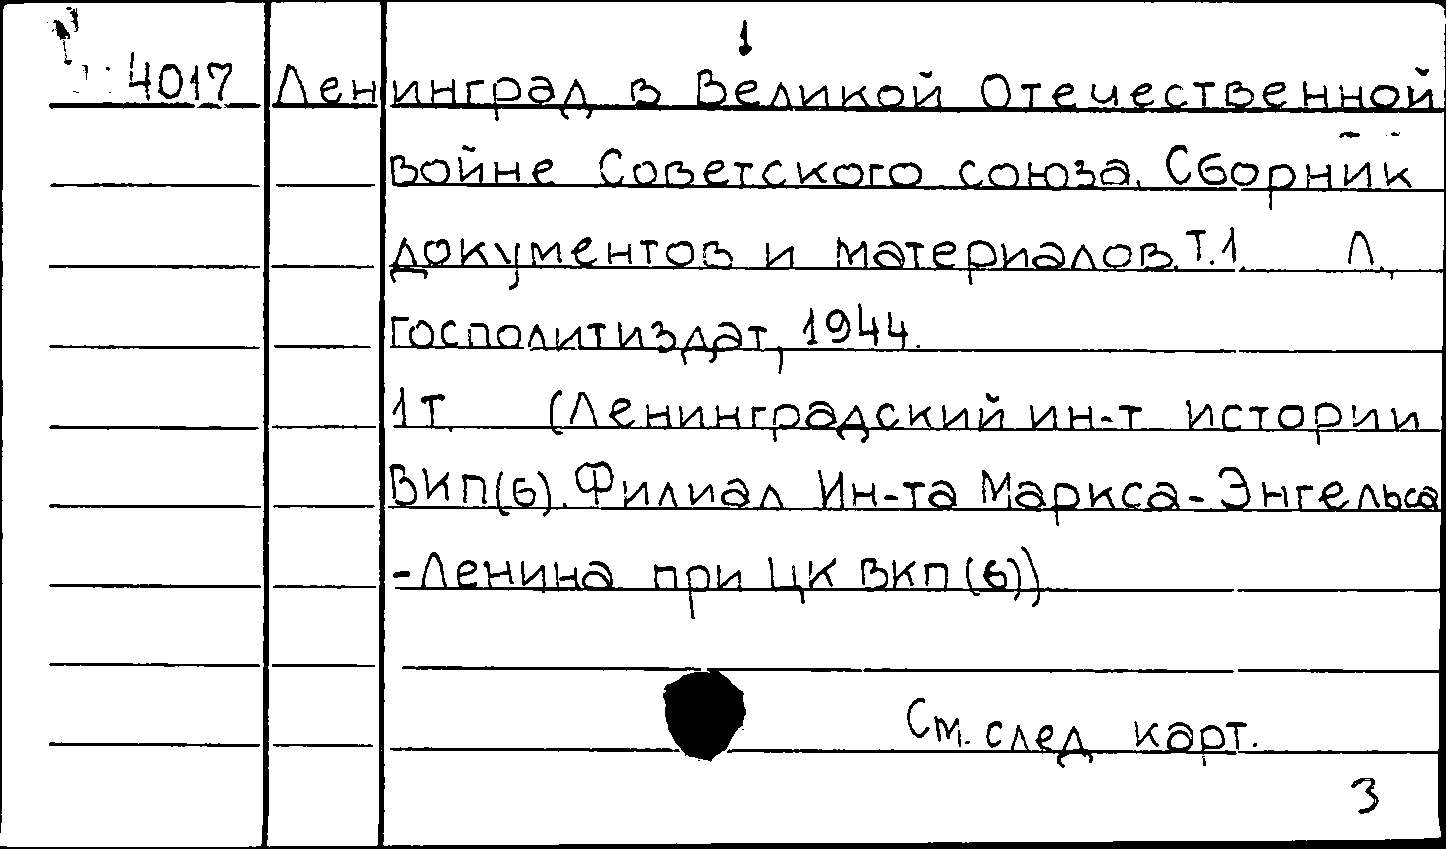 1
4017 Ленинград в Великой Отечественной
войне Советского союза. Сборник
документов и материалов. Т.1. Л.,
госполитиздат, 1944.
1 т. (Ленинградский ин-т истории
ВКП(б). Филиал Ин-та Маркса-Энгельса
-Ленина при ЦК ВКП(б))
См. след карт.
3